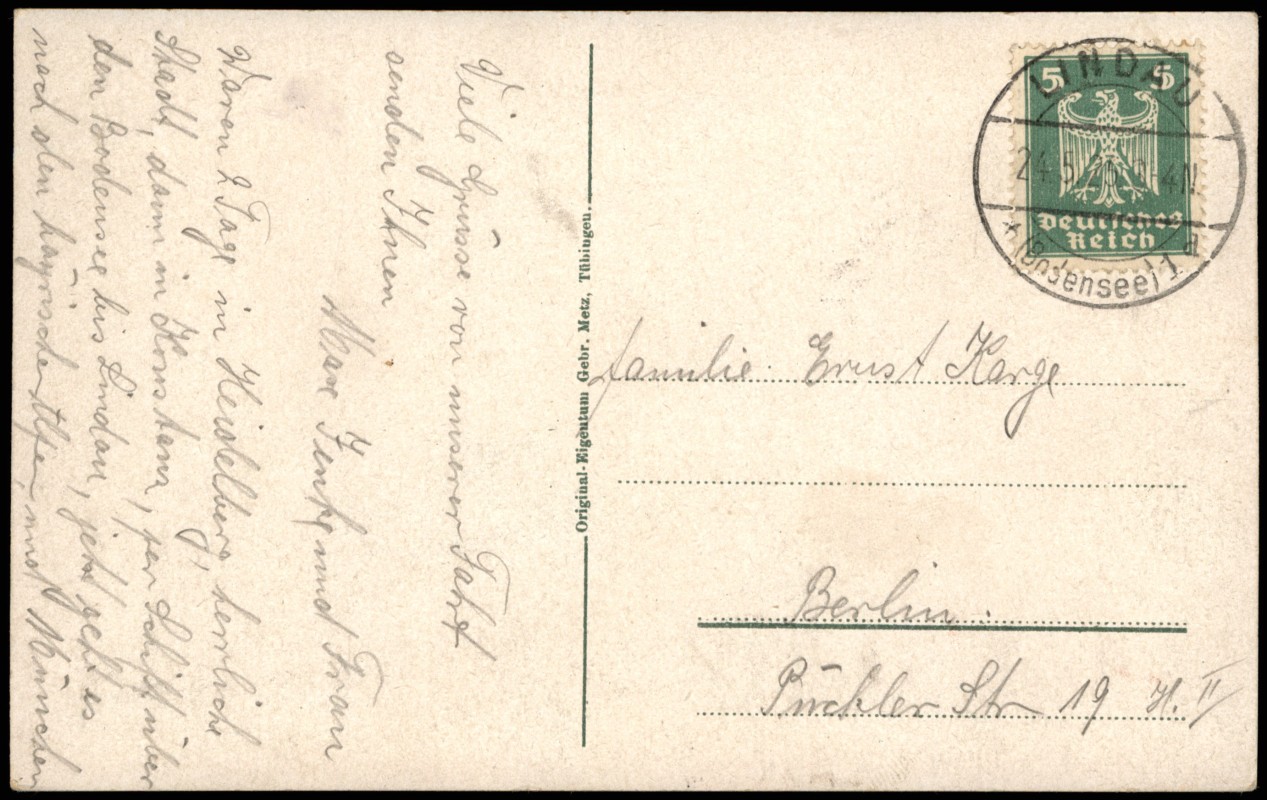 Viele Grüsse von unserer Fahrt
senden Ihnen
Max und Frau
Waren 2 Tage in Heidelberg, herrliche
Stadt, dann in Konstanz, per Schiff über
den Bodensee bis Lindau, jetzt geht es
nach den bayrischen Alpen und München
Original-Eigentum Gebr. Metz, Tübingen.
5 5
Deutsches
Reich
LINDAU
24.5. 4N.
(Bodensee) 1
Familie Ernst Karge
Berlin.
Pückler Str 19 H. II